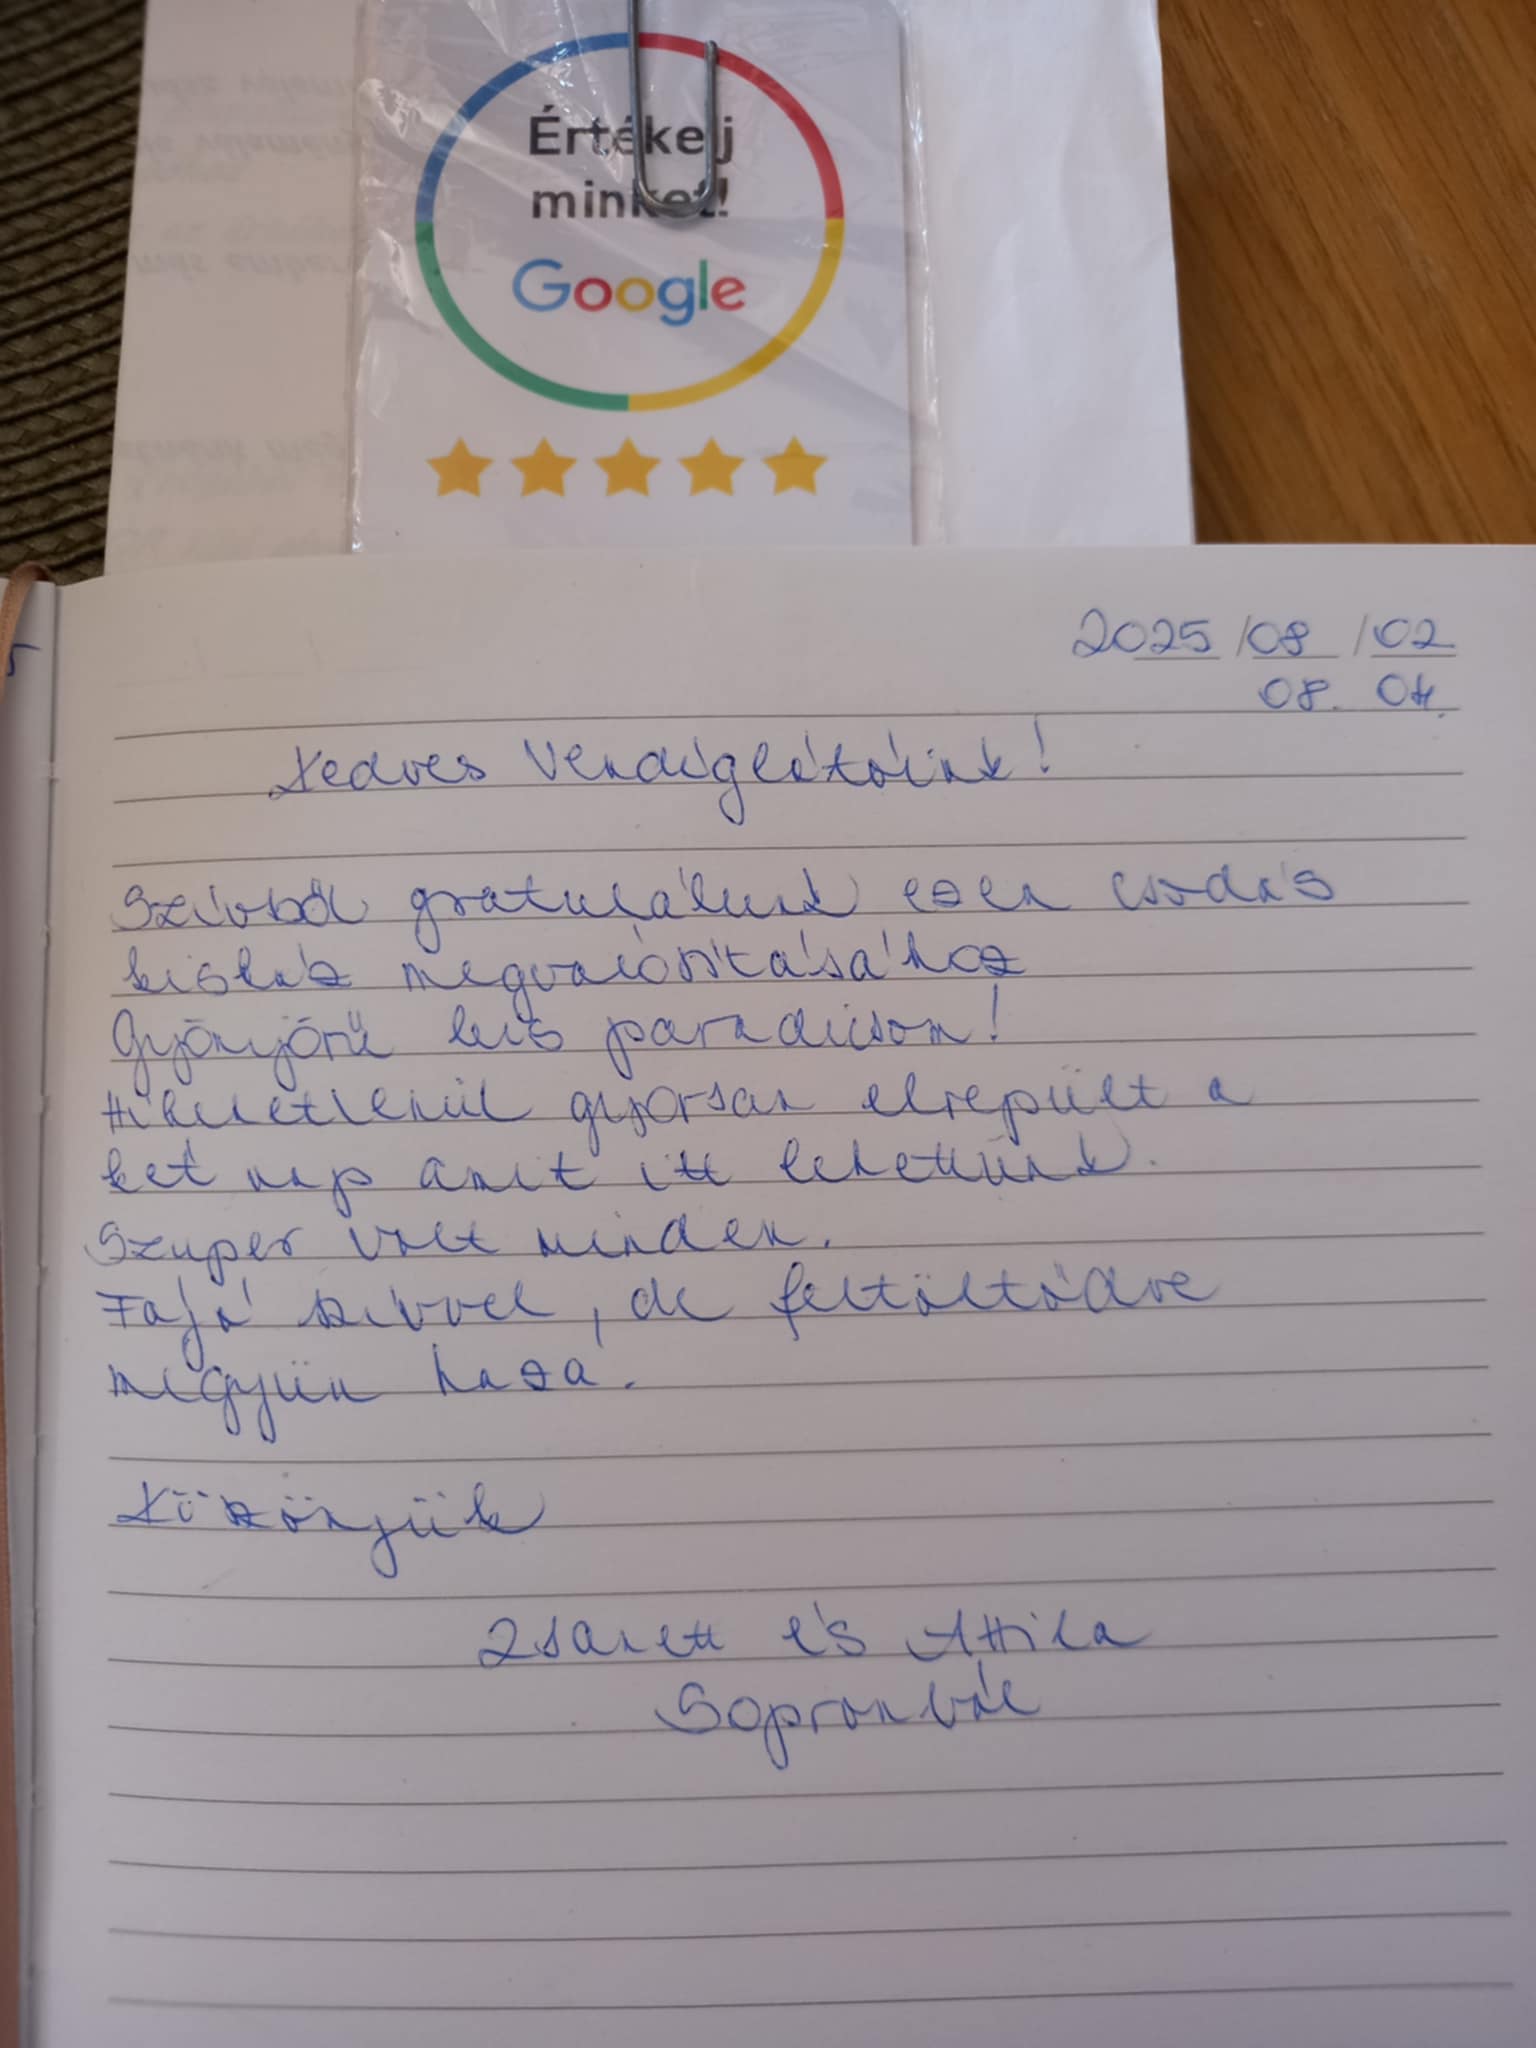 Értékelj
minket!
Google
2025/08/02
08. 04.
Kedves Vendéglátóink!
Szívből gratulálunk ezen csodás
kisház megvalósításához
Gyönyörű kis paradicsom!
Hihetetlenül gyorsan elrepült a
két nap amit itt lehettünk.
Szuper volt minden.
Fájó szívvel, de feltöltődve
megyün haza.
Köszönjük
Zsanett és Attila
Sopronból